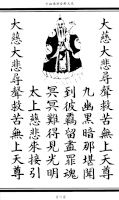 大慈大悲尋聲救苦無上天尊
九幽黑暗那堪聞
到彼羈留盡罪魂
冥冥難得見光明
太上慈悲來接引
大慈大悲尋聲救苦無上天尊
大慈大悲尋聲救苦無上天尊